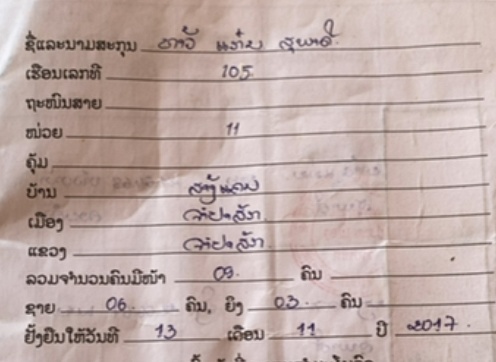 ຊື່ແລະນາມສະກຸນ ທາວີ ແກ້ວ ສຸພາວີ
ເຮືອນເລກທີ 105
ຖະໜົນສາຍ
ໜ່ວຍ 11
ຄຸ້ມ
ບ້ານ
ເມືອງ ຈຳປາສັກ
ແຂວງ ຈຳປາສັກ
ລວມຈຳນວນຄົນມີໜ້າ 09 ຄົນ
ຊາຍ 06 ຄົນ, ຍິງ 03 ຄົນ
ຢັ້ງຢືນໃຫ້ວັນທີ 13 ເດືອນ 11 ປີ 2017